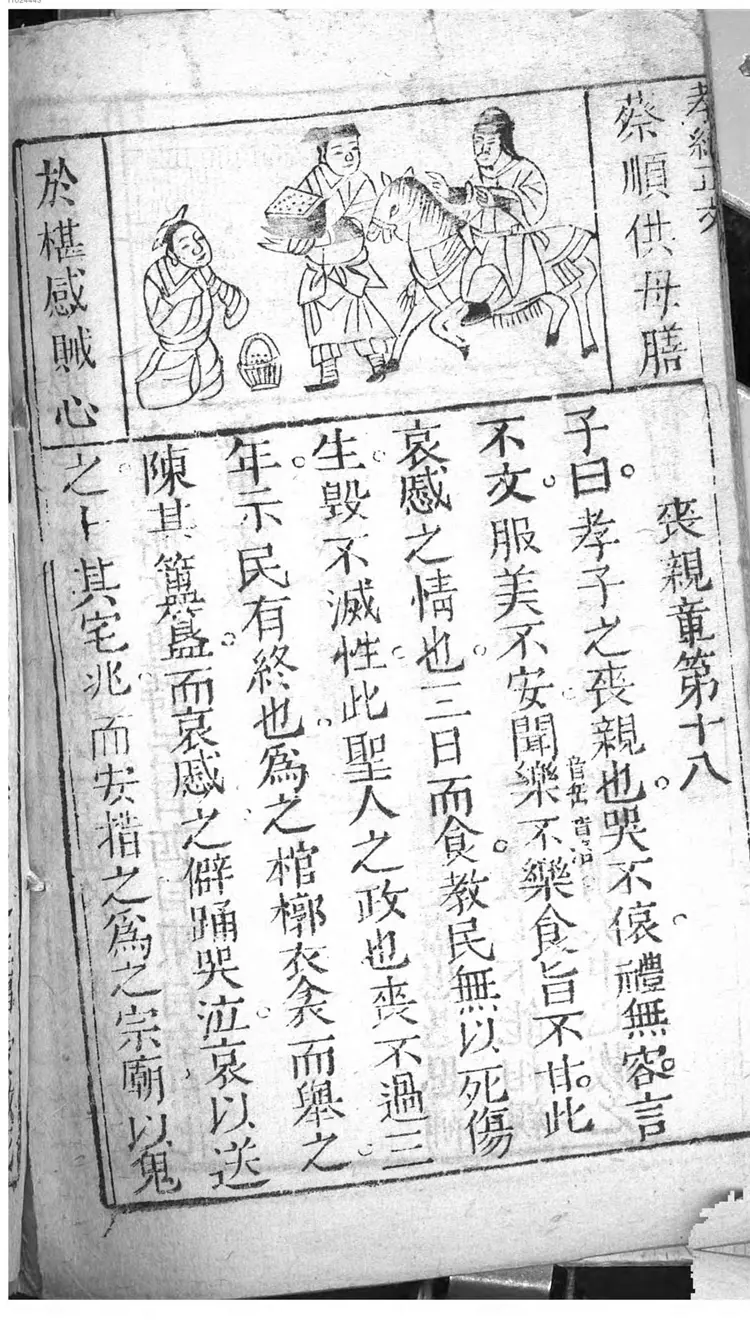 孝經正文
蔡順供母膳
於椹感賊心
喪親章第十八
子曰。孝子之喪親也。哭不偯。禮無容。言
不文。服美不安。聞樂音岳不樂音洛食旨不甘。此
哀慼之情也。三日而食。教民無以死傷
生。毀不滅性。此聖人之政也喪不過三
年。示民有終也。爲之棺槨衣衾而舉之。
陳其簠簋。而哀慼之僻踊哭泣。哀以送
之。卜其宅兆。而安措之爲之宗廟以鬼